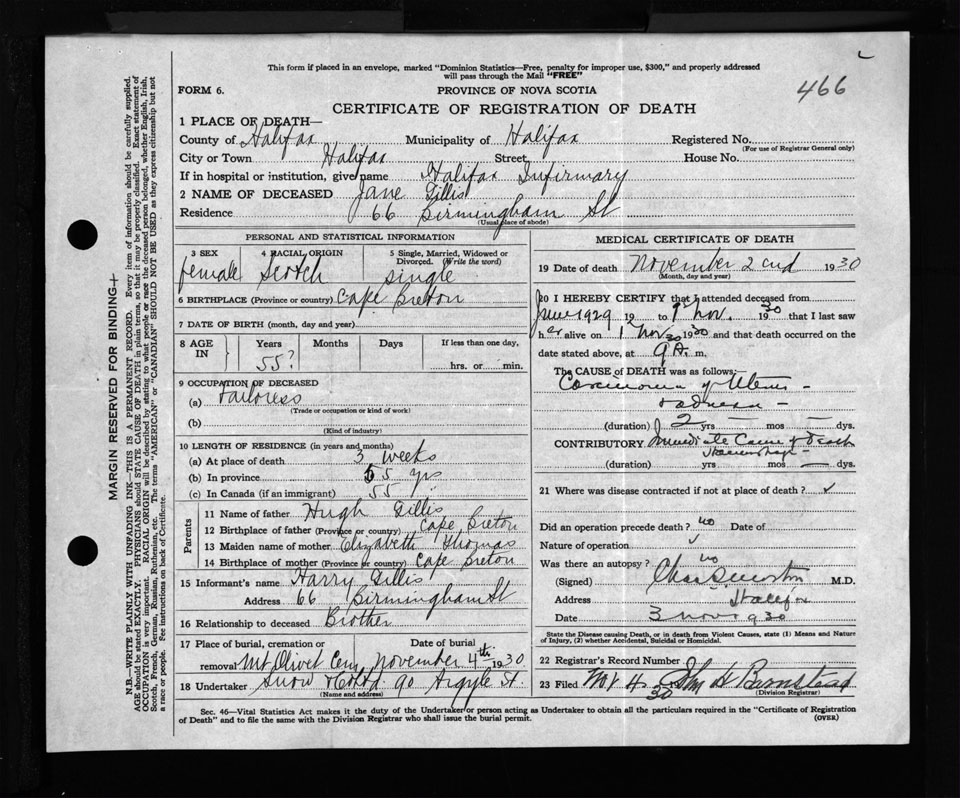 This form if placed in an envelope, marked "Dominion Statistics—Free, penalty for improper use, $300," and properly addressed
will pass through the Mail "FREE"
466
FORM 6.
PROVINCE OF NOVA SCOTIA
CERTIFICATE OF REGISTRATION OF DEATH
1 PLACE OF DEATH—
County of Halifax Municipality of Halifax Registered No.
(For use of Registrar General only)
City or Town Halifax Street House No.
If in hospital or institution, give name Halifax Infirmary
2 NAME OF DECEASED Jane Gillis
Residence 66 Birmingham St
(Usual place of abode)
PERSONAL AND STATISTICAL INFORMATION
3 SEX 4 RACIAL ORIGIN 5 Single, Married, Widowed or
Divorced. (Write the word)
female Scotch single
6 BIRTHPLACE (Province or country) Cape Breton
7 DATE OF BIRTH (month, day and year)
8 AGE IN Years Months Days If less than one day,
55? hrs. or min.
9 OCCUPATION OF DECEASED
(a) Tailoress
(Trade or occupation or kind of work)
(b)
(Kind of industry)
10 LENGTH OF RESIDENCE (in years and months)
(a) At place of death 3 weeks
(b) In province 55 yrs
(c) In Canada (if an immigrant) 55 "
Parents
11 Name of father Hugh Gillis
12 Birthplace of father (Province or country) Cape Breton
13 Maiden name of mother Elizabeth Thomas
14 Birthplace of mother (Province or country) Cape Breton
15 Informant's name Harry Gillis
Address 66 Birmingham St
16 Relationship to deceased Brother
17 Place of burial, cremation or Date of burial
removal Mt Olivet Cem November 4th 1930
18 Undertaker Snow & Co Ltd 90 Argyle St.
(Name and address)
MEDICAL CERTIFICATE OF DEATH
19 Date of death November 2nd 1930
(Month, day and year)
20 I HEREBY CERTIFY that I attended deceased from
June 1929 19 to 1st Nov. 1930 that I last saw
her alive on 1 Nov 1930 and that death occurred on the
date stated above, at 9 A. m.
The CAUSE OF DEATH was as follows:—
Carcinoma of Uterus —
(duration) 2 yrs — mos — dys.
CONTRIBUTORY Immediate Cause of death
(duration) yrs mos — dys.
21 Where was disease contracted if not at place of death?
Did an operation precede death? no Date of
Nature of operation
Was there an autopsy? no
(Signed) Chas M.D.
Address Halifax
Date 3 Nov 1930
State the Disease causing Death, or in death from Violent Causes, state (1) Means and Nature
of Injury, (2) whether Accidental, Suicidal or Homicidal.
22 Registrar's Record Number
23 Filed Nov 4 30 John H Barnstead
(Division Registrar)
Sec. 46—Vital Statistics Act makes it the duty of the Undertaker or person acting as Undertaker to obtain all the particulars required in the "Certificate of Registration
of Death" and to file the same with the Division Registrar who shall issue the burial permit. (OVER)
MARGIN RESERVED FOR BINDING
N.B.—WRITE PLAINLY WITH UNFADING INK—THIS IS A PERMANENT RECORD. Every item of information should be carefully supplied.
AGE should be stated EXACTLY. PHYSICIANS should STATE CAUSE OF DEATH in plain terms, so that it may be properly classified. Exact statement of
OCCUPATION is very important. RACIAL ORIGIN will be described by stating to what people or race the deceased person belonged, whether English, Irish,
Scotch, French, German, Russian, Ruthenian, etc. The terms "AMERICAN" or "CANADIAN" SHOULD NOT BE USED as they express citizenship but not
a race or people. See instructions on back of Certificate.